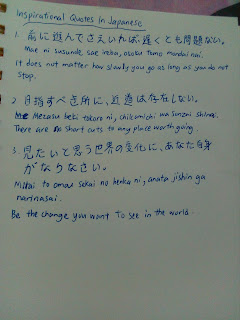 Inspirational Quotes In Japanese
1. 前に遊んでさえいれば、遅くとも問題ない。
Mae ni susunde sae ireba, osoku tomo mondai nai.
It does not matter how slowly you go as long as you do not
stop.
2 目指すべき所に、近道は存在しない。
Mezasu beki tokoro ni, chikamichi wa sonzai shinai.
There are no short cuts to any place worth going.
3. 見たいと思う世界の変化に、あなた自身
がなりなさい。
Mitai to omou sekai no henka ni, anata jishin ga
narinasai.
Be the change you want To see in the world.